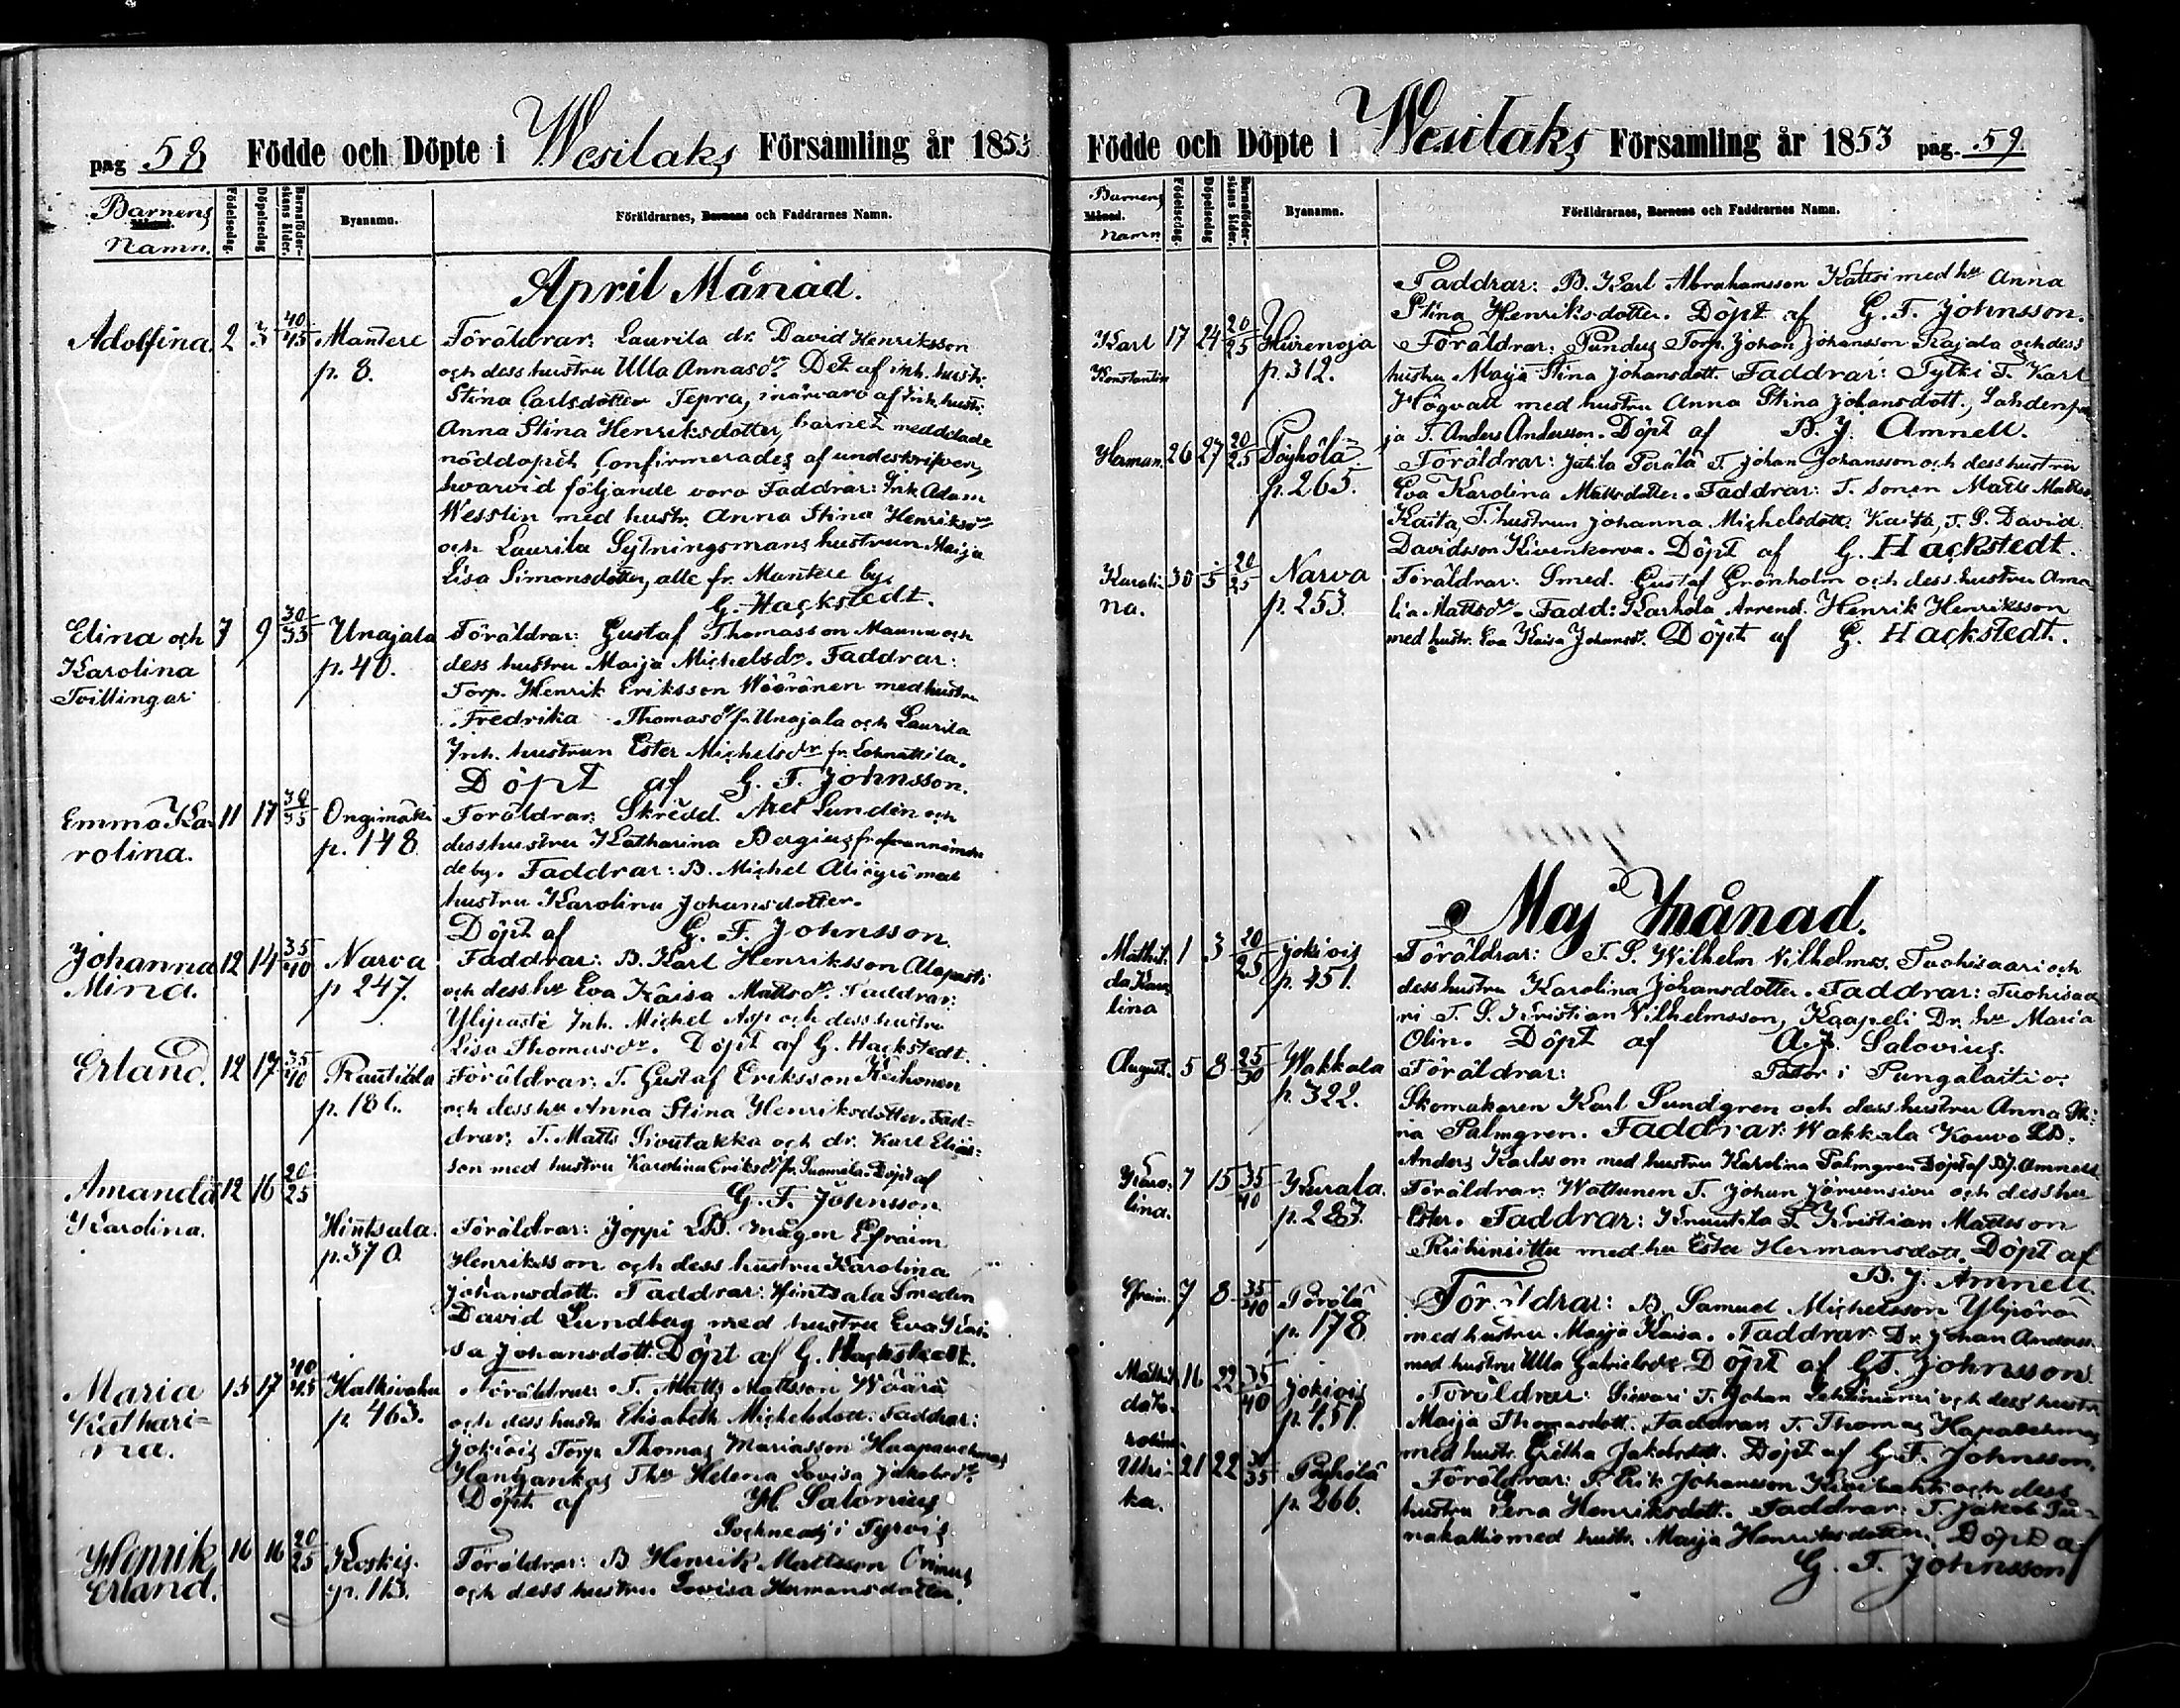 pag 58 Födde och Döpte i Wesilaks Församling år 1853
Barnens Namn. Födelsedag. Döpelsedag Barnaföderskans ålder. Byanamn. Föräldrarnes, Barnens och Faddrarnes Namn.
April Månad.
Adolfina. 2 3 40/45 Mantere Föräldrar: Laurila dr. David Henriksson
p. 8. och dess hustru Ulla Annasdr. Det af inh. hustr.
Stina Carlsdotter Tepra, i närvaro af Inh. hustr.
Anna Stina Henriksdotter, barnet meddelade
nöddopet Confirmerades af undeskrifven,
hvarvid följande voro Faddrar: Inh. Adam
Wesslin med hustr. Anna Stina Henriksdr
och Laurila Sytningsmans hustrun Maija
Lisa Simonsdotter, alle fr. Mantere by.
G. Hackstedt.
Elina och 7 9 30/35 Unajala Föräldrar: Gustaf Thomasson Mauna och
Karolina p. 40. dess hustru Maija Michelsdr. Faddrar:
Tvillingar Torp. Henrik Eriksson Wäärönen med hustru
Fredrika Thomasdr fr. Unajala och Laurila
Inh. hustrun Ester Michelsdr fr.
Döpt af G. F. Johnsson.
Emma Ka- 11 17 30/35 Ongimäki Föräldrar: Skrädd. Axel Lundén och
rolina. p. 148 dess hustru Katharina Bergius fr ofvannämn
de by. Faddrar: B. Michel Alisyri med
hustru Karolina Johansdotter.
Döpt af G. F. Johnsson.
Johanna 12 14 35/40 Narva Faddrar: B. Karl Henriksson Alapasti
Mina. p 247. och dess hu Eva Kaisa Mattsdr. Faddrar:
Ylipasti Inh. Michel Asp och dess hustru
Lisa Thomasdr. Döpt af G. Hackstedt.
Erland. 12 17 35/40 Rautiala Föräldrar: T. Gustaf Eriksson Keihonen
p. 186. och dess hu Anna Stina Henriksdotter. Fad-
drar: T. Matts Sivutakka och dr. Karl Elias-
son med hustru Karolina Eriksdr fr. Suomela. Döpt af
Amanda 12 16 20/25 G. F. Johnsson
Karolina. Hintsala. Föräldrar: Joppi LB. mågen Efraim
p. 370. Henriksson och dess hustru Karolina
Johansdott. Faddrar: Hintsala Smeden
David Lundberg med hustru Eva Kai-
sa Johansdott. Döpt af G. Hackstedt.
Maria 15 17 40/45 Halkivaha Föräldrar: T. Matts Mattsson Wäärä
Kathari- p. 463. och dess hustr. Elisabeth Michelsdott. Faddrar:
na. Jokiois Torp. Thomas Mariasson Haapavehmas
Hangankas Thu Helena Lovisa Jakobsdr.
Döpt af H. Salonius
Sockneadj i Tyrvis
Henrik 16 16 20/25 Koskis. Föräldrar: B Henrik Mattsson
Erland. p. 113. och dess hustru Lovisa Hermansdotter.
Födde och Döpte i Wesilaks Församling år 1853 pag. 59
Barnens Namn Födelsedag. Döpelsedag Barnaföderskans ålder. Byanamn. Föräldrarnes, Barnens och Faddrarnes Namn.
Faddrar: B. Karl Abrahamsson Kattsi med hu Anna
Stina Henriksdotter. Döpt af G. F. Johnsson.
Karl 17 24 20/25 Hurenoja Föräldrar: Pundus Torp. Johan Johansson Rajala och dess
Konstantin p. 312. hustru Maija Stina Johansdott. Faddrar: T. Karl
Högvall med hustru Anna Stina Johansdott.,
ja T. Anders Andersson. Döpt af B. J. Amnell.
Herman. 26 27 20/25 Pöyhölä Föräldrar: Jutila T. Johan Johansson och dess hustru
p. 265. Eva Karolina Mattsdotter. Faddrar: T. Sonen Matts
Kaita, T. hustrun Johanna Michelsdott. Kaita, T. S. David
Davidsson Kivenkorva. Döpt af G. Hackstedt.
Karoli- 30 5 20/25 Narva Föräldrar: Smed. Gustaf Grönholm och dess hustru Ama
na. p. 253. lia Mattsdr. Fadd: Karhola Arrend. Henrik Henriksson
med hustr. Eva Kaisa Johansdr. Döpt af G. Hackstedt.
Maj Månad.
Mathil- 1 3 20/25 Jokiois Föräldrar: T. S. Wilhelm Vilhelmss. Tuohisaari och
da Karo p. 451. dess hustru Karolina Johansdotter. Faddrar: Tuohisaa
lina ri T. S. Kristian Vilhelmsson, Kaapeli Dr. hu Maria
Olin. Döpt af A. J. Salovius.
August. 5 8 25/30 Wakkala Föräldrar: Pastor i Pungalaitio.
p. 322. Skomakaren Karl Sundgren och dess hustru Anna Sti-
na Palmgren. Faddrar: Wakkala Kouvo LB.
Anders Karlsson med hustru Karolina Palmgren Döpt af B. J. Amnell
Karo- 7 15 35/40 Kurala. Föräldrar: Wattunen T. Johan Järvensivu och dess hu
lina. p. 287. Ester. Faddrar: Knuutila T. Kristian Mattsson
med hu Ester Hermansdott. Döpt af
B. J. Amnell.
Efraim. 7 8 35/40 Pörölä Föräldrar: B. Samuel Michelsson Ylipörö
p. 178 med hustru Maija Kaisa. Faddrar Dr. Johan Anderss.
med hustru Ulla Gabrielsdr. Döpt af G. F. Johnsson
Mathil- 16 22 35/40 Jokiois Föräldrar: T. Johan och dess hustr.
da Ka- p. 451. Maija Thomasdott. Faddrar: T. Thomas Hapavehmas
rolina. med hustr. Gretha Jakobsdott. Döpt af G. F. Johnsson.
Ulri- 21 22 30/35 Pöyhölä Föräldrar: T. Erik Johansson och dess
ka. p. 266. hustru Lena Henriksdott. Faddrar: T. Jakob Pu-
nakallio med hustr. Maija Henriksdotter. Döpt af
G. F. Johnsson